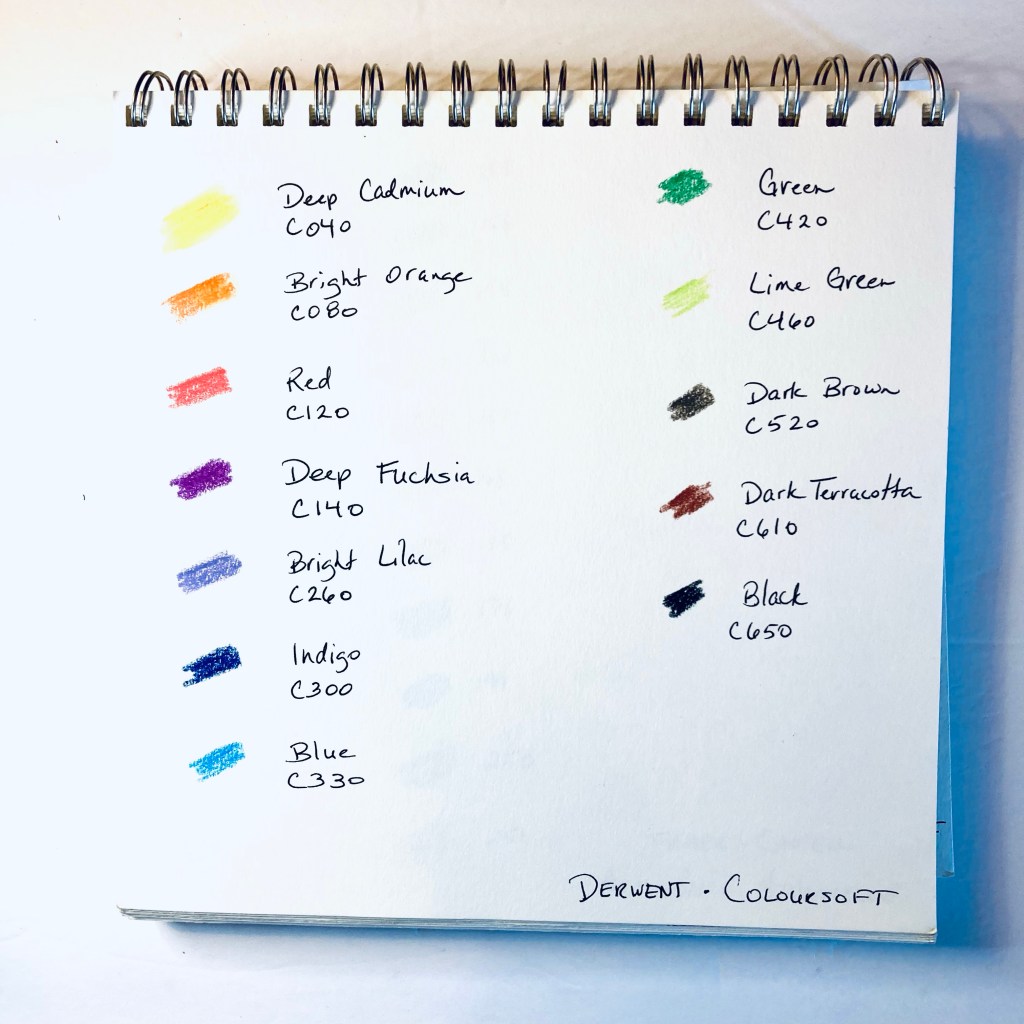 Deep Cadmium
C040
Bright Orange
C080
Red
C120
Deep Fuchsia
C140
Bright Lilac
C260
Indigo
C300
Blue
C330
Green
C420
Lime Green
C460
Dark Brown
C520
Dark Terracotta
C610
Black
C650
DERWENT · COLOURSOFT